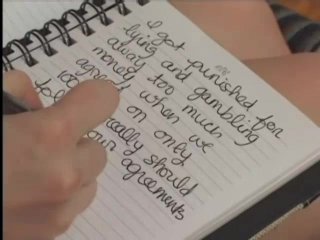 I got punished for
lying and gambling
away too much
money when we
agreed on only
100
should
our agreements